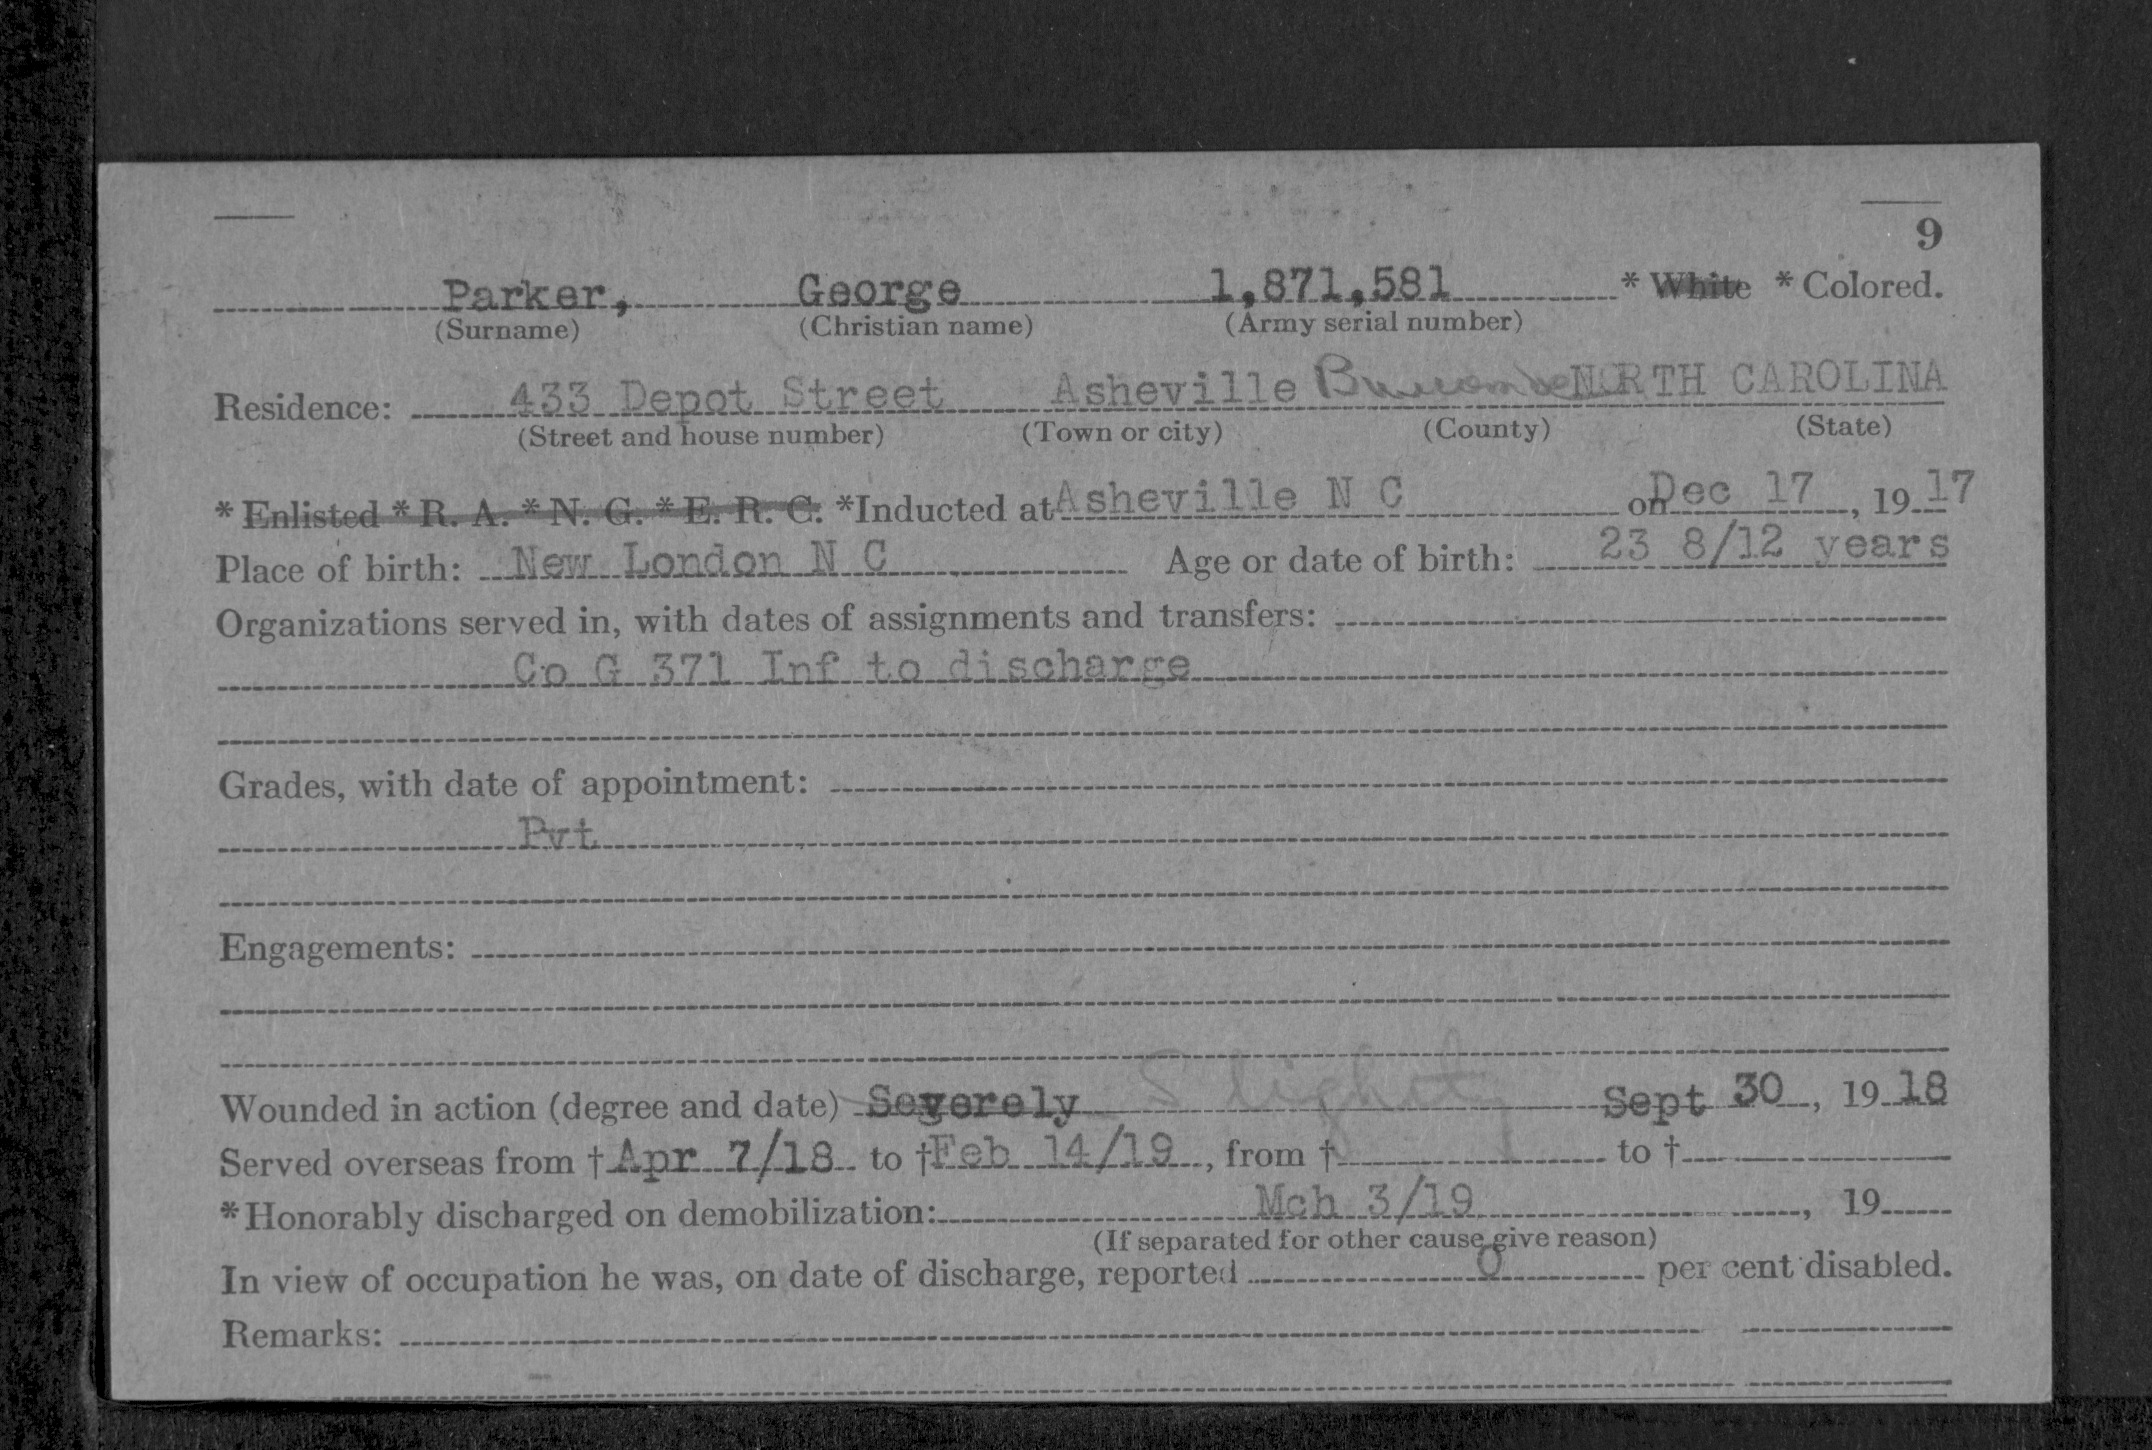 9
Parker, George 1,871,581 * White * Colored.
(Surname) (Christian name) (Army serial number)
Residence: 433 Depot Street Asheville Buncombe NORTH CAROLINA
(Street and house number) (Town or city) (County) (State)
* Enlisted * R. A. * N. G. * E. R. C. *Inducted at Asheville N C on Dec 17, 19 17
Place of birth: New London N C Age or date of birth: 23 8/12 years
Organizations served in, with dates of assignments and transfers:
Co G 371 Inf to discharge
Grades, with date of appointment:
Pvt
Engagements:
Wounded in action (degree and date) Severely Slightly Sept 30, 19 18
Served overseas from † Apr 7/18 to † Feb 14/19, from † to †
* Honorably discharged on demobilization: Mch 3/19, 19
(If separated for other cause give reason)
In view of occupation he was, on date of discharge, reported 0 per cent disabled.
Remarks: